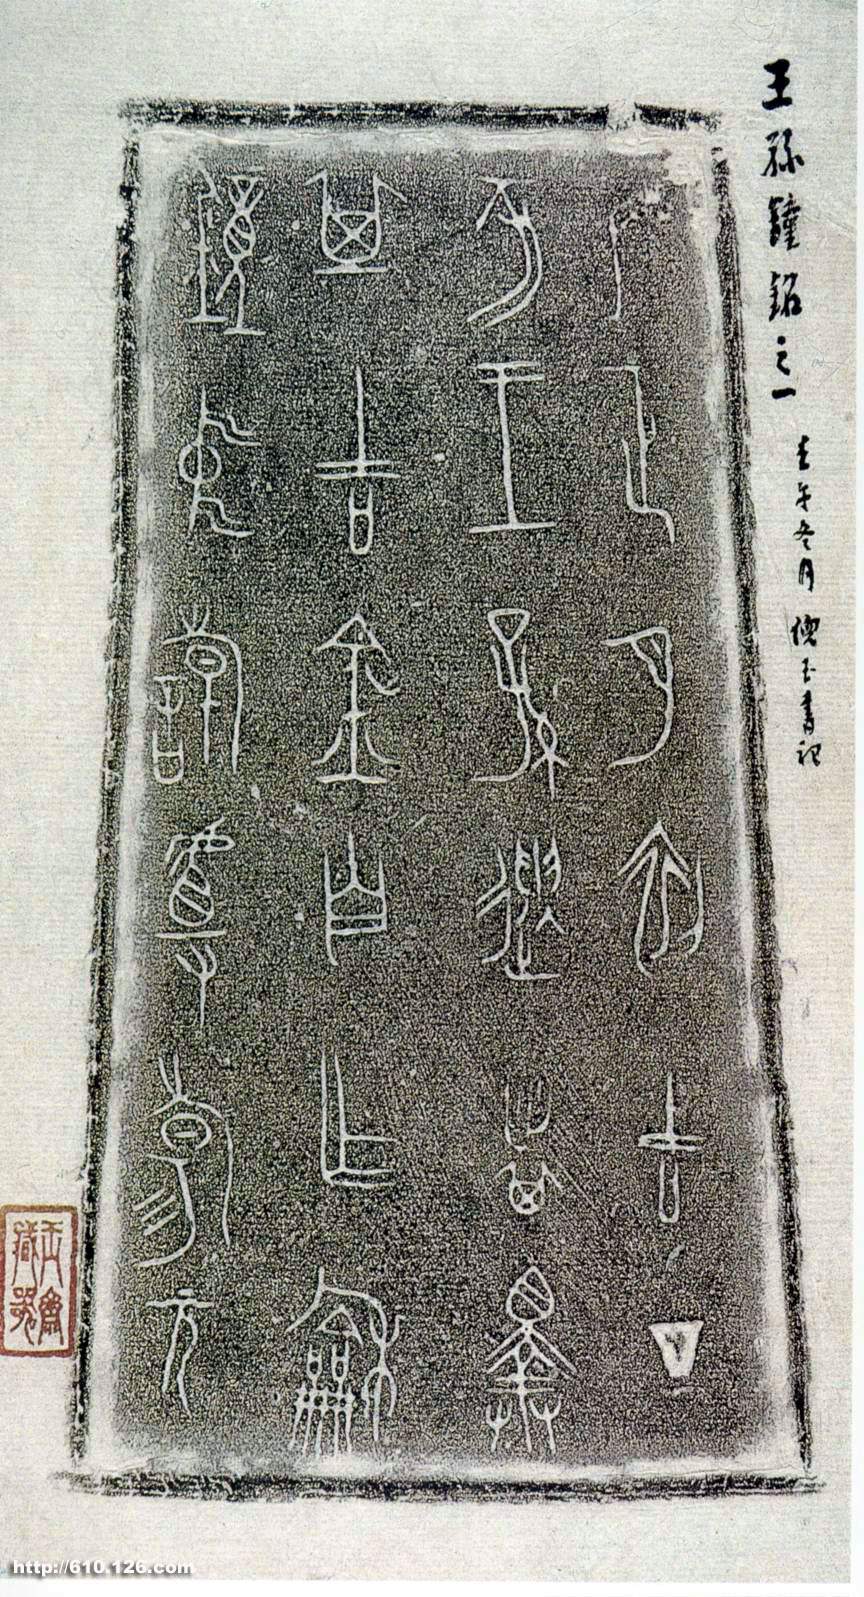 王孫鐘銘之一
壬午冬月書記
隹正月初吉丁
亥王孫遺者擇
其吉金自乍龢
鐘中虘元
http://610.126.com